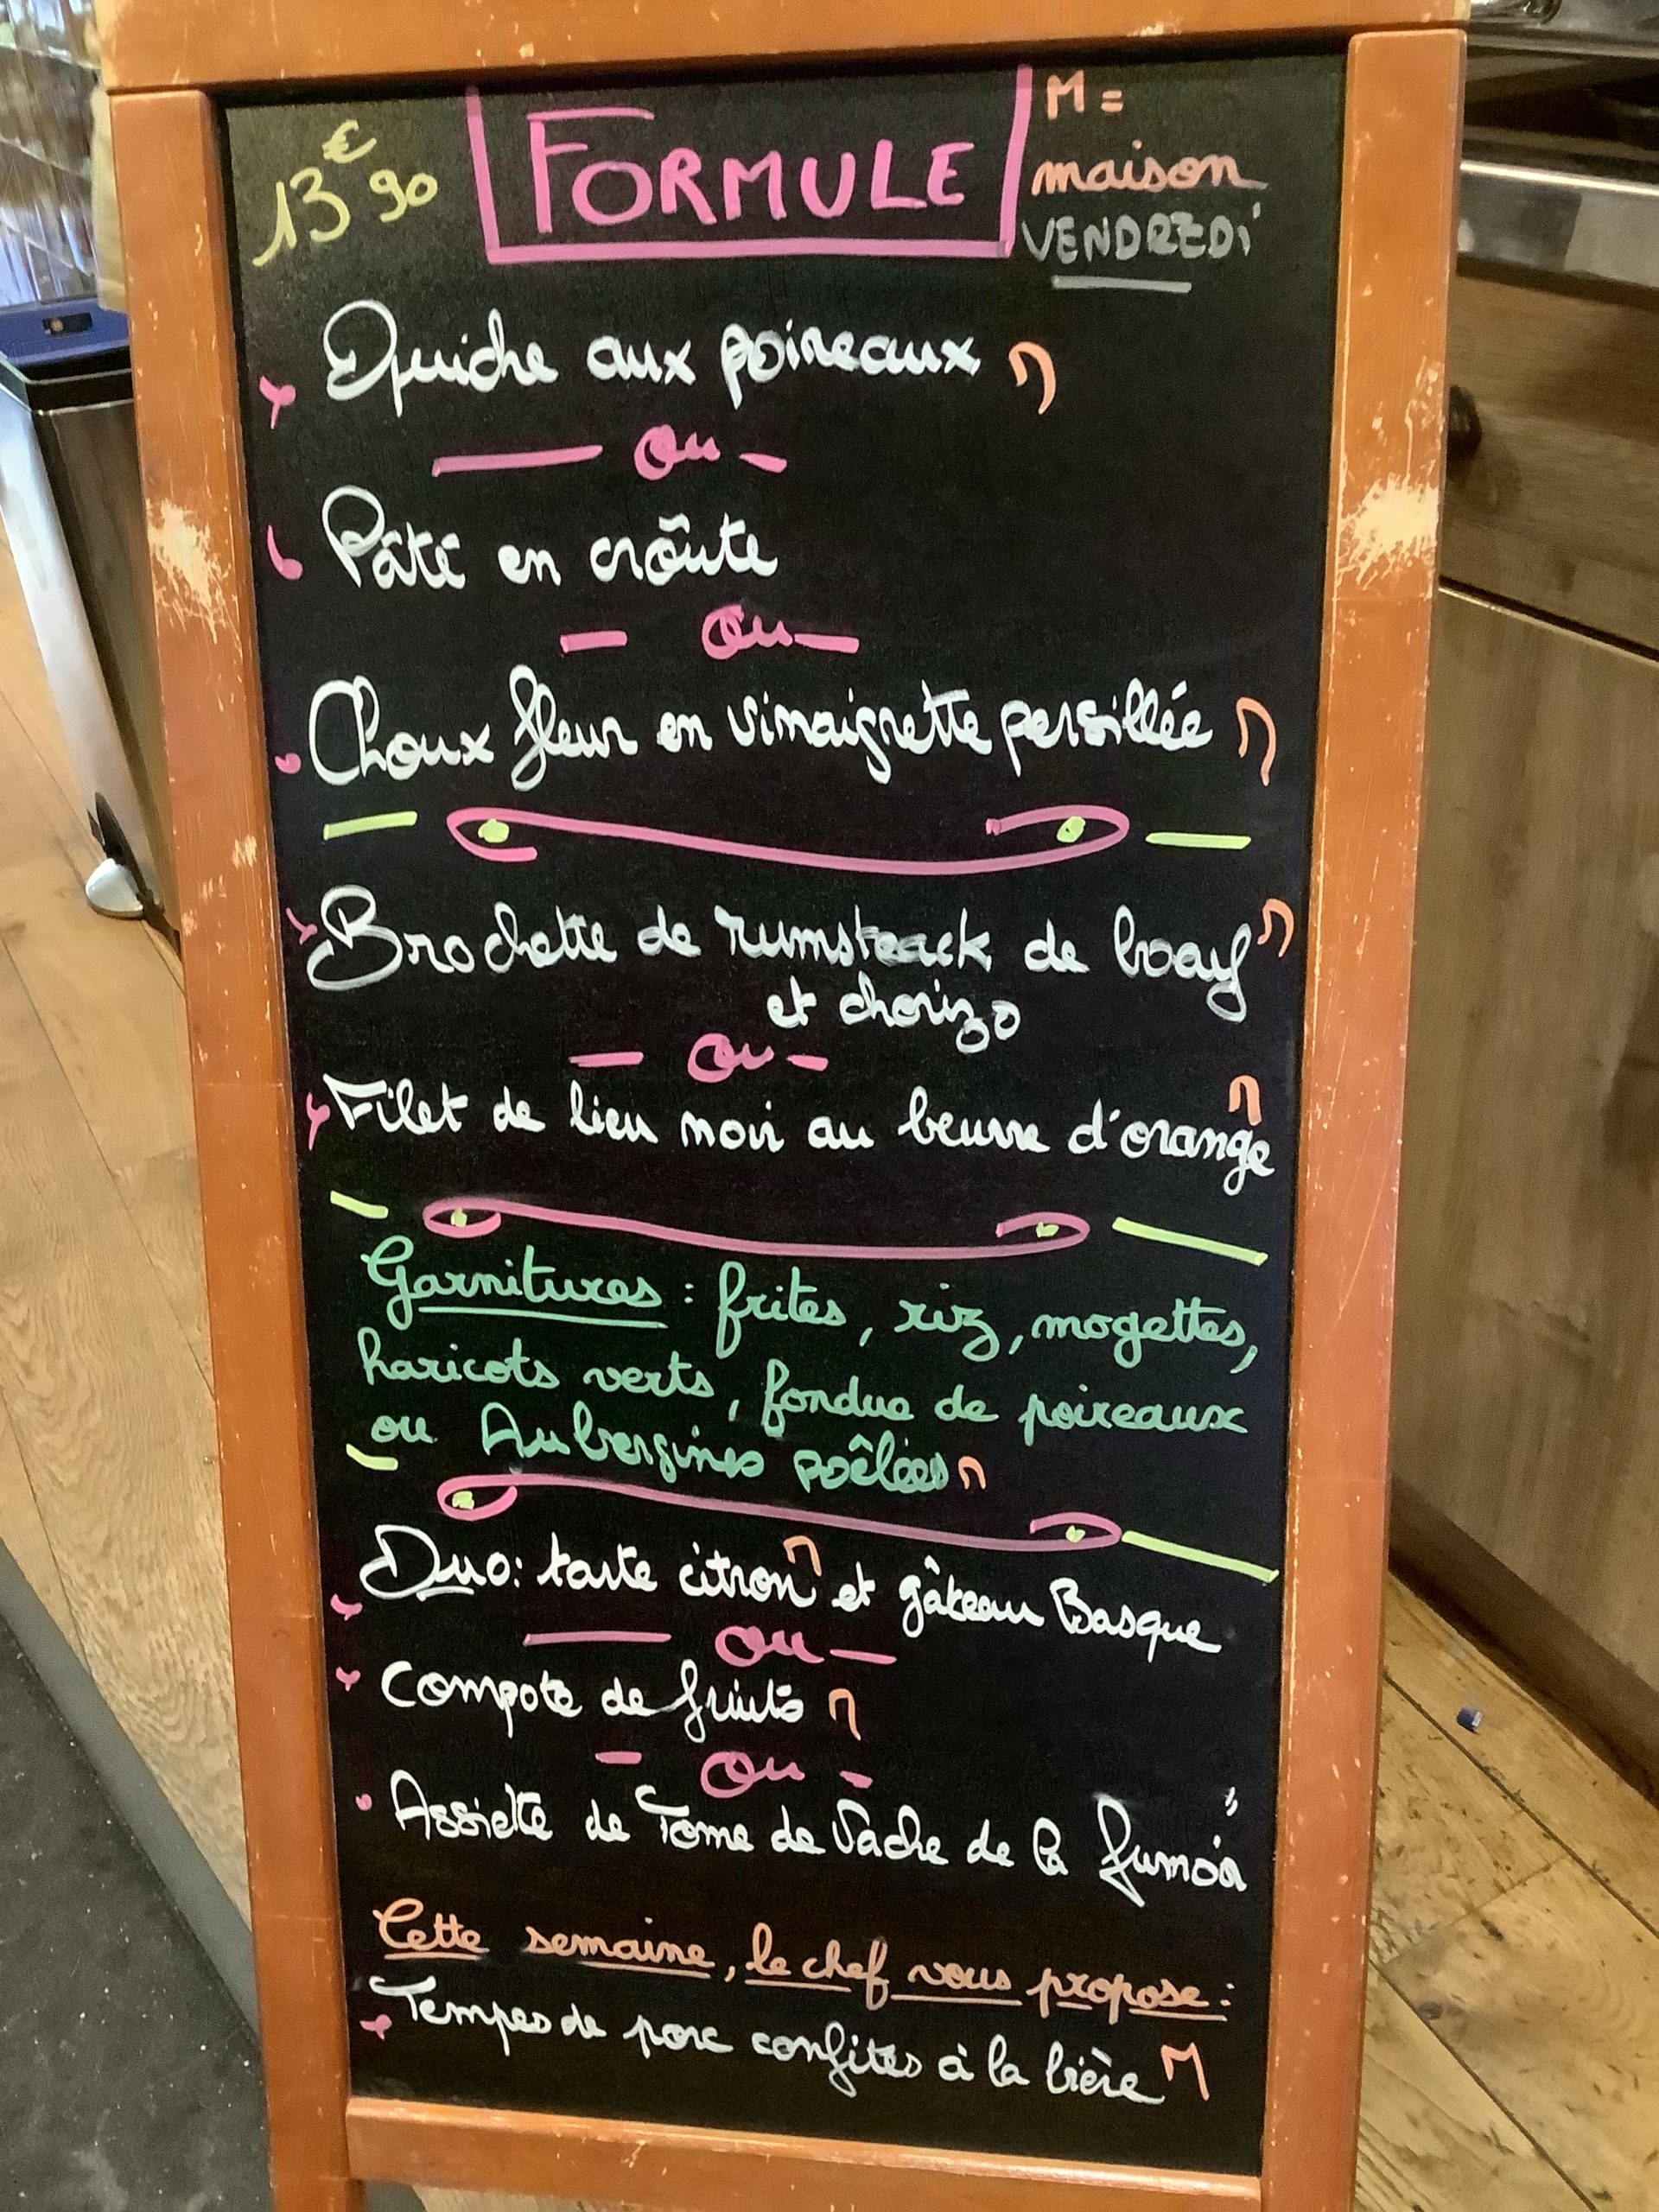 13€90 FORMULE M =
maison
VENDREDi
Quiche aux poireaux M
— Ou —
Pâté en croûte
— Ou —
Choux fleur en vinaigrette persillée M
Brochette de rumsteack de boeuf M
et chorizo
— Ou —
Filet de lieu noir au beurre d'orange M
Garnitures : frites, riz, mogettes,
haricots verts, fondue de poireaux
ou Aubergines poêlées M
Duo: tarte citron M et gâteau Basque
— Ou —
Compote de fruits M
— Ou —
Assiette de Tome de Vache de la
Cette semaine, le chef vous propose :
Tempes de porc confites à la bière M